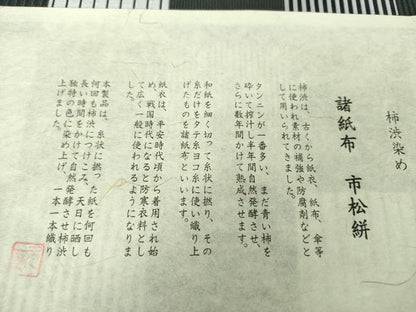 柿渋染め
諸紙布 市松絣
柿渋は、古くから紙衣、紙布、傘等
に使われ素材の補強や防腐剤などと
して用いられてきました。
タンニンが一番多い、まだ青い柿を
砕いて搾汁し半年間自然発酵させ、
さらに数年間かけて熟成させます。
和紙を細く切って糸状に撚り、その
糸だけをタテ糸ヨコ糸に使い織り上
げたものを諸紙布といいます。
紙衣は、平安時代頃から着用され始
め、戦国時代になると防寒衣料とし
て広く一般に使われるようになりま
した。
本製品は、糸状に撚った紙を何回も
何回も柿渋につけこみ、天日に晒し
長い時間をかけて自然発酵させ柿渋
独特の色に染め上げ、一本一本織り
上げました。